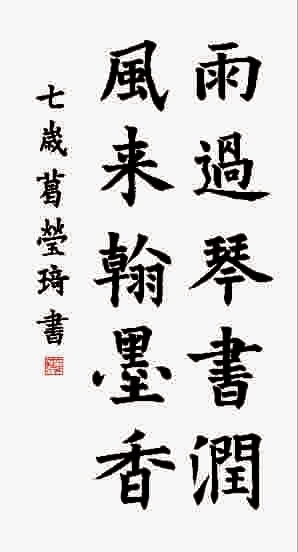 雨過琴書潤
風来翰墨香
七歲葛瑩琦書